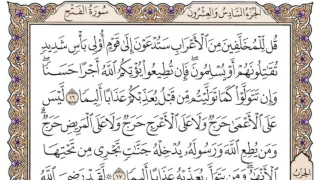 الجزء السادس والعشرون
سورة الفتح
قُل لِّلْمُخَلَّفِينَ مِنَ ٱلْأَعْرَابِ سَتُدْعَوْنَ إِلَىٰ قَوْمٍ أُو۟لِى بَأْسٍ شَدِيدٍ
تُقَٰتِلُونَهُمْ أَوْ يُسْلِمُونَ ۖ فَإِن تُطِيعُوا۟ يُؤْتِكُمُ ٱللَّهُ أَجْرًا حَسَنًا ۖ
وَإِن تَتَوَلَّوْا۟ كَمَا تَوَلَّيْتُم مِّن قَبْلُ يُعَذِّبْكُمْ عَذَابًا أَلِيمًا ١٦ لَّيْسَ
عَلَى ٱلْأَعْمَىٰ حَرَجٌ وَلَا عَلَى ٱلْأَعْرَجِ حَرَجٌ وَلَا عَلَى ٱلْمَرِيضِ حَرَجٌ ۗ
وَمَن يُطِعِ ٱللَّهَ وَرَسُولَهُۥ يُدْخِلْهُ جَنَّٰتٍ تَجْرِى مِن تَحْتِهَا
ٱلْأَنْهَٰرُ ۖ وَمَن يَتَوَلَّ يُعَذِّبْهُ عَذَابًا أَلِيمًا ١٧ ۞ لَّقَدْ رَضِىَ ٱللَّهُ
الحزب